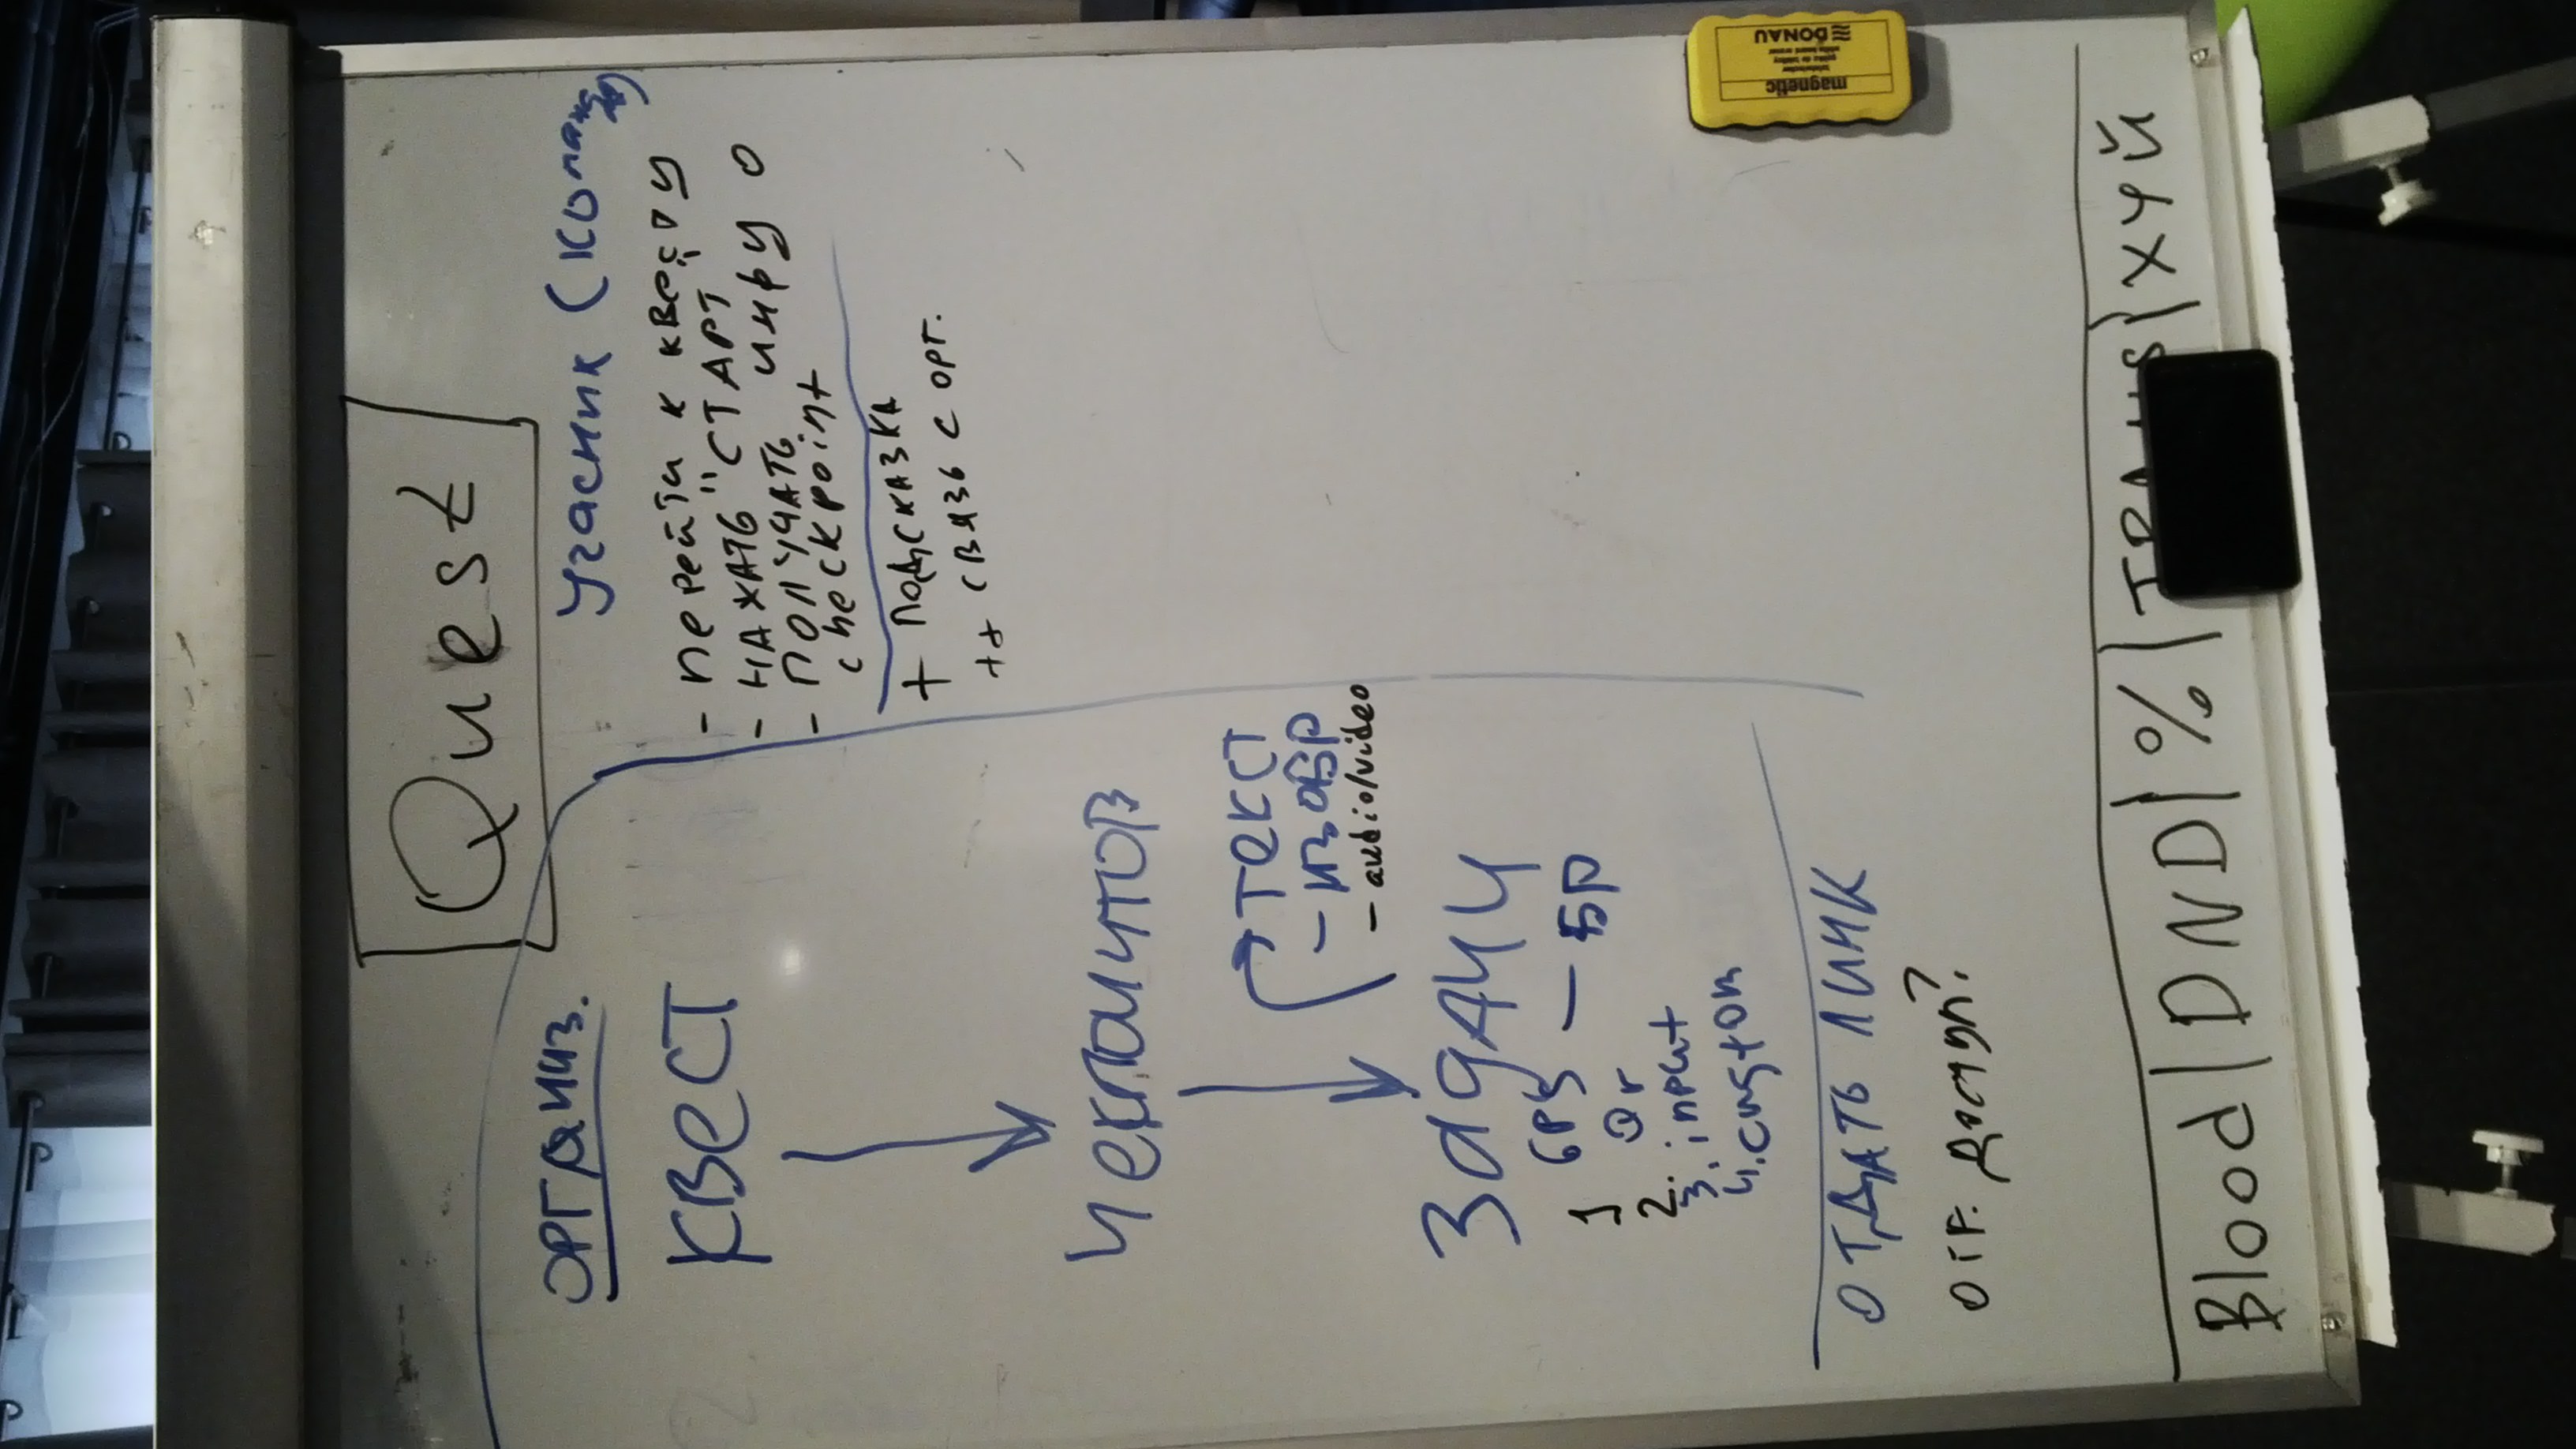 Quest
ОРГАНИЗ.
КВЕСТ
Чекпоинтов
ТЕКСТ
- ИЗОБР
- audio/video
Задачи
1 GPS - БР
2. Qr
3. input
4. custom
ОТДАТЬ ЛИНК
доступ?
Учасник (команда)
- Перейти к квесту
- НАЖАТЬ "СТАРТ"
- ПОЛУЧАТЬ инфу о
checkpoint
+ ПОДСКАЗКА
++ СВЯЗЬ С ОРГ.
Blood | DND | % | TRANS | ХУЙ
magnetic
DONAU